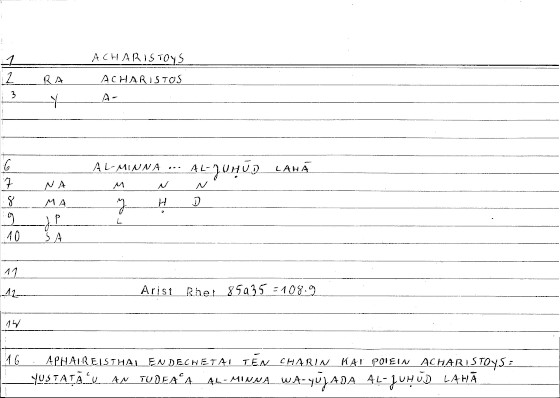 1 ACHARISTOYS
2 RA ACHARISTOS
3 Y A-
6 AL-MINNA ... AL-JUḤŪD LAHĀ
7 NA M N N
8 MA J Ḥ D
9 JP L
10 SA
11
12 Arist Rhet 85a35 = 108.9
14
16 APHAIREISTHAI ENDECHETAI TĒN CHARIN KAI POIEIN ACHARISTOYS =
YUSTAṬĀʿU AN TUDFAʿA AL-MINNA WA-YŪJADA AL-JUḤŪD LAHĀ